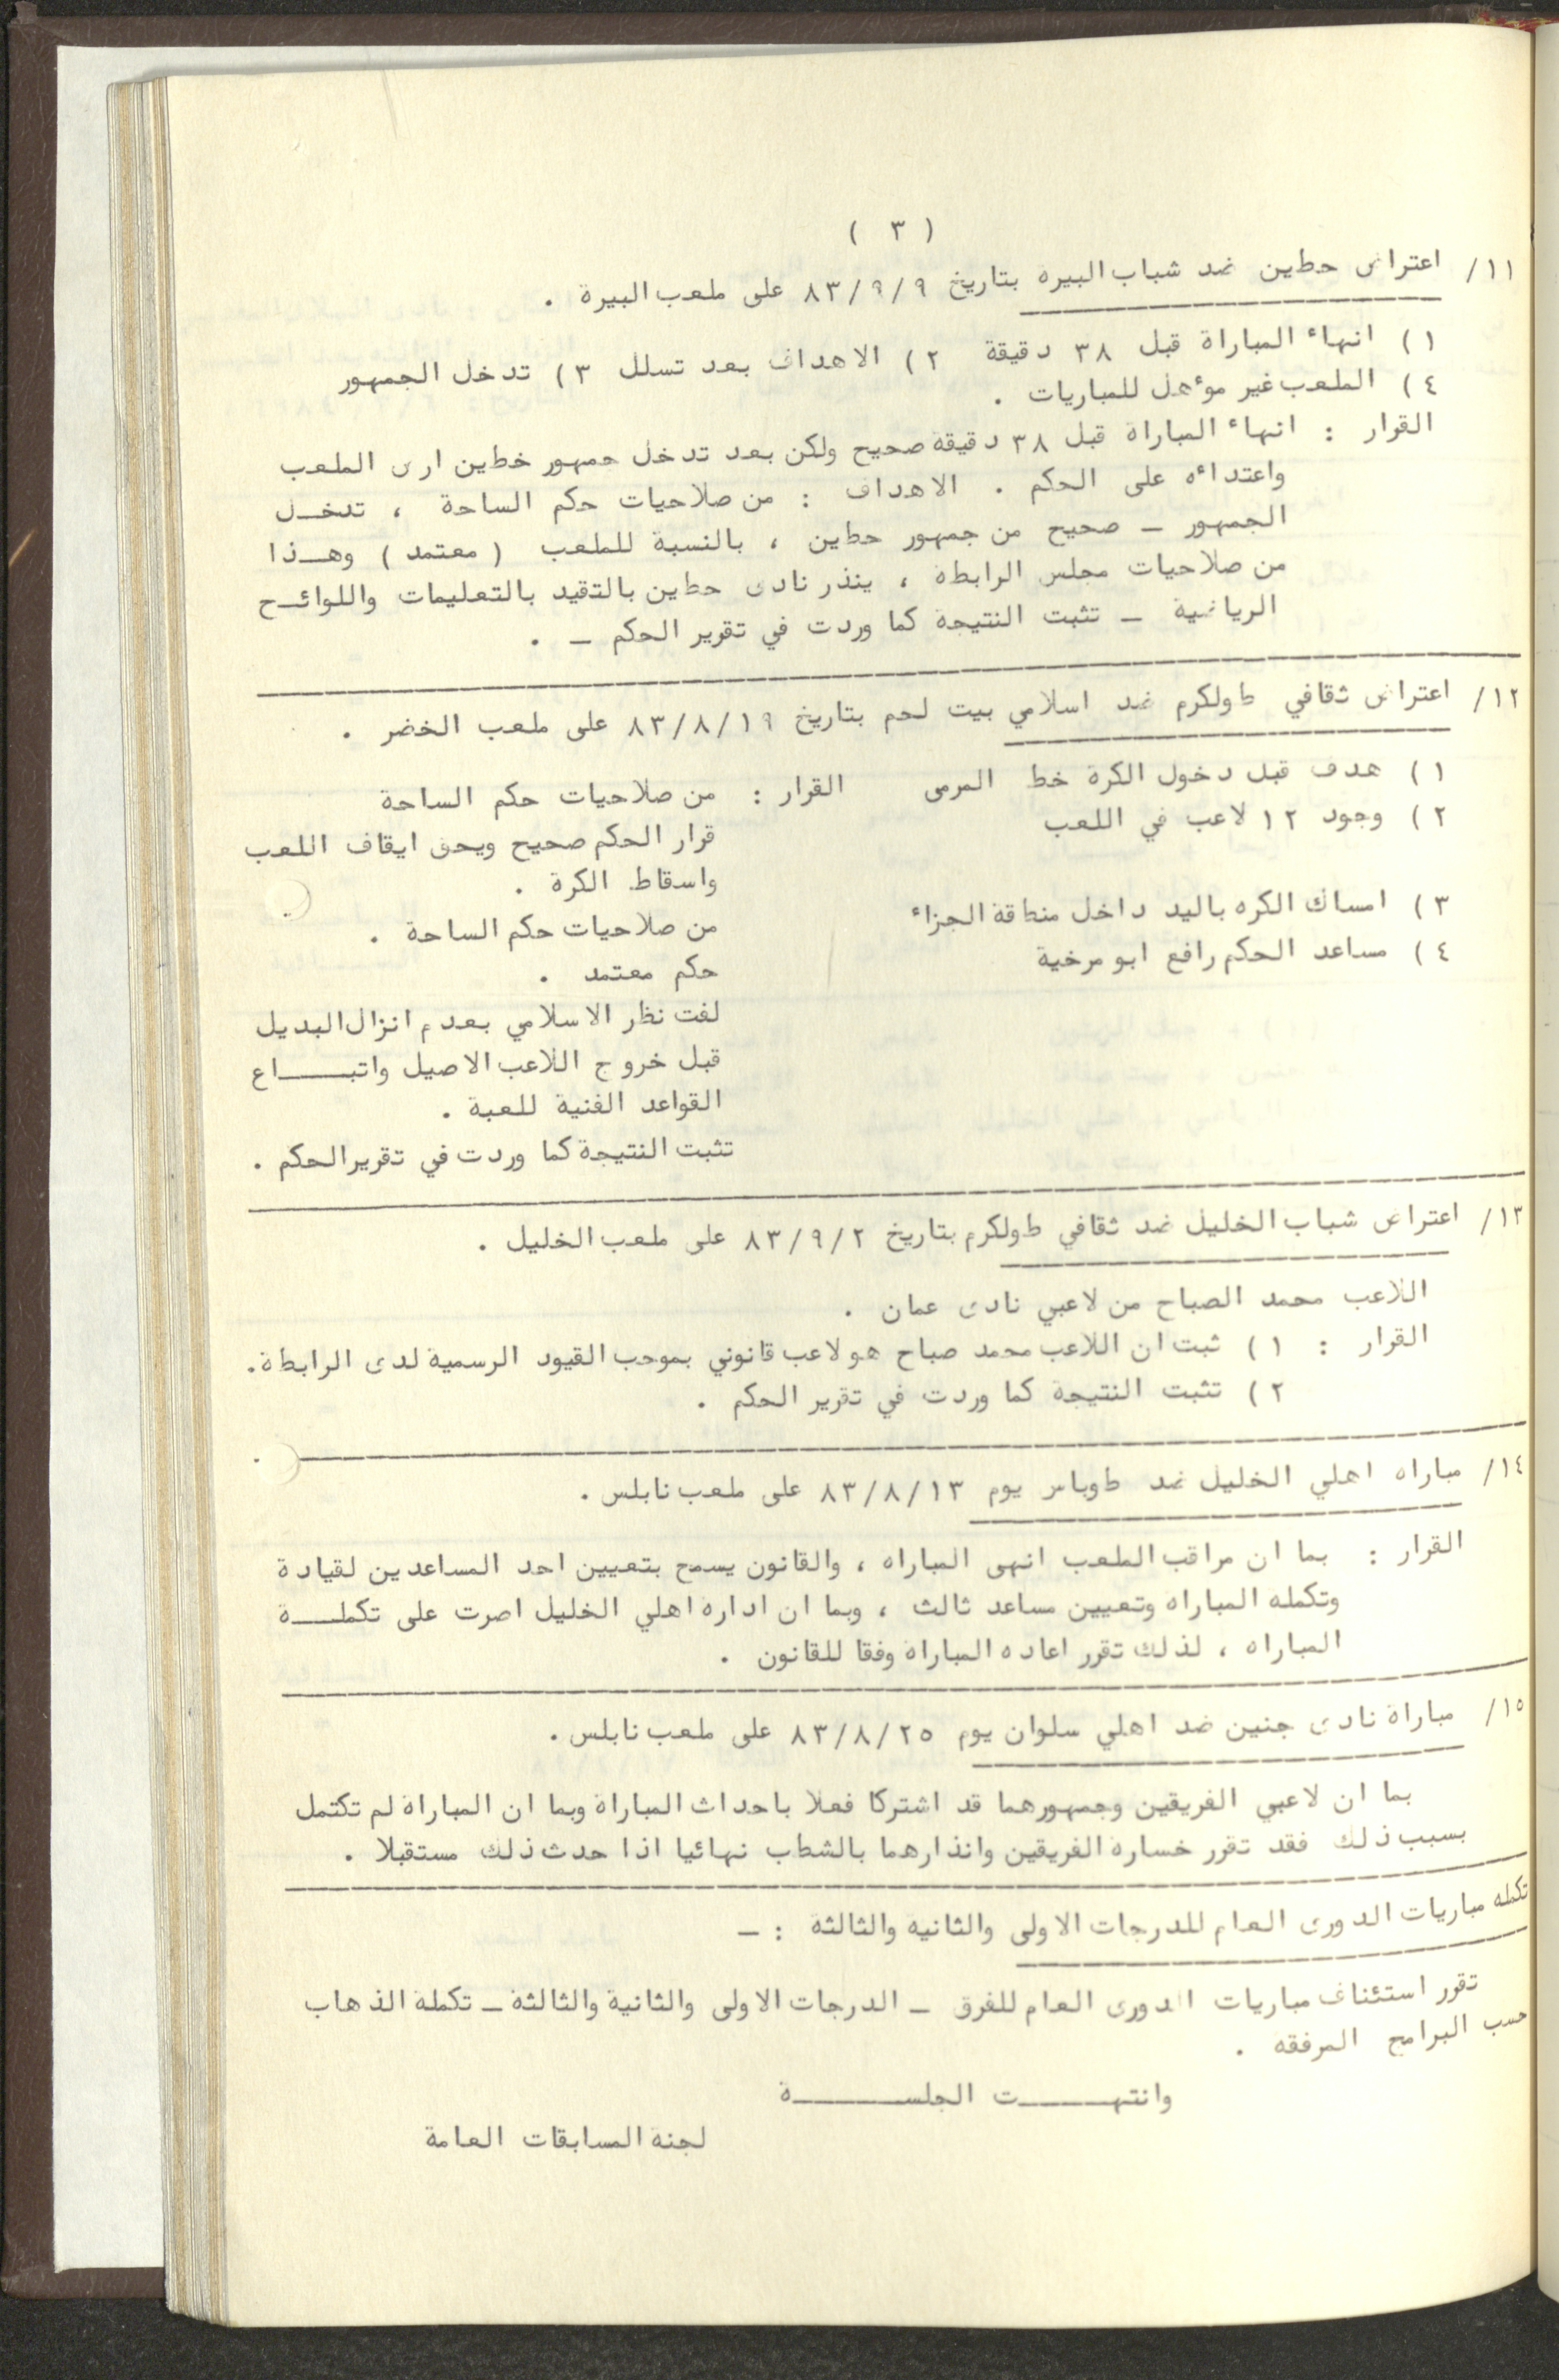 ( ٣ )
١١/ اعتراض حطين ضد شباب البيره بتاريخ ٨٣/٩/٩ على ملعب البيرة .
١ ) انهاء المباراة قبل ٣٨ دقيقة ٢ ) الاهداف بعد تسلل ٣ ) تدخل الجمهور
٤ ) الملعب غير مؤهل للمباريات .
القرار : انهاء المباراة قبل ٣٨ دقيقة صحيح ولكن بعد تدخل جمهور خطين ارض الملعب
واعتداءه على الحكم . الاهداف : من صلاحيات حكم الساحة ، تدخـل
الجمهور ـ صحيح من جمهور حطين ، بالنسبة للملعب ( معتمد ) وهـذا
من صلاحيات مجلس الرابطة ، ينذر نادى حطين بالتقيد بالتعليمات واللوائـح
الرياضية ـ تثبت النتيجة كما وردت في تقرير الحكم ـ .
١٢/ اعتراض ثقافي طولكرم ضد اسلامي بيت لحم بتاريخ ٨٣/٨/١٩ على ملعب الخضر .
١ ) هدف قبل دخول الكرة خط المرمى القرار : من صلاحيات حكم الساحة
٢ ) وجود ١٢ لاعب في اللعب
قرار الحكم صحيح ويحق ايقاف اللعب
واسقاط الكرة .
٣ ) امساك الكره باليد داخل منطقة الجزاء
من صلاحيات حكم الساحة .
٤ ) مساعد الحكم رافع ابو مرخية
حكم معتمد .
لفت نظر الاسلامي بعدم انزال البديل
قبل خروج اللاعب الاصيل واتبــاع
القواعد الفنية للعبة .
تثبت النتيجة كما وردت في تقرير الحكم .
١٣/ اعتراض شباب الخليل ضد ثقافي طولكرم بتاريخ ٨٣/٩/٢ على ملعب الخليل .
اللاعب محمد الصباح من لاعبي نادى عمان .
القرار : ١ ) ثبت ان اللاعب محمد صباح هو لاعب قانوني بموجب القيود الرسمية لدى الرابطة.
٢ ) تثبت النتيجة كما وردت في تقرير الحكم .
١٤/ مباراه اهلي الخليل ضد طوباس يوم ٨٣/٨/١٣ على ملعب نابلس .
القرار : بما ان مراقب الملعب انهى المباراه ، والقانون يسمح بتعيين احد المساعدين لقيادة
وتكمله المباراه وتعيين مساعد ثالث ، وبما ان اداره اهلي الخليل اصرت على تكملــة
المباراه ، لذلك تقرر اعاده المباراة وفقا للقانون .
١٥/ مباراة نادى جنين ضد اهلي سلوان يوم ٨٣/٨/٢٥ على ملعب نابلس .
بما ان لاعبي الفريقين وجمهورهما قد اشتركا فعلا باحداث المباراة وبما ان المباراة لم تكتمل
بسبب ذلك فقد تقرر خساره الفريقين وانذارهما بالشطب نهائيا اذا حدث ذلك مستقبلا .
تكمله مباريات الدورى العام للدرجات الاولى والثانيه والثالثة : ـ
تقرر استئناف مباريات الدورى العام للفرق ـ الدرجات الاولى والثانية والثالثة ـ تكملة الذهاب
حسب البرامج المرفقه .
وانتهــــت الجلســــة
لجنة المسابقات العامة